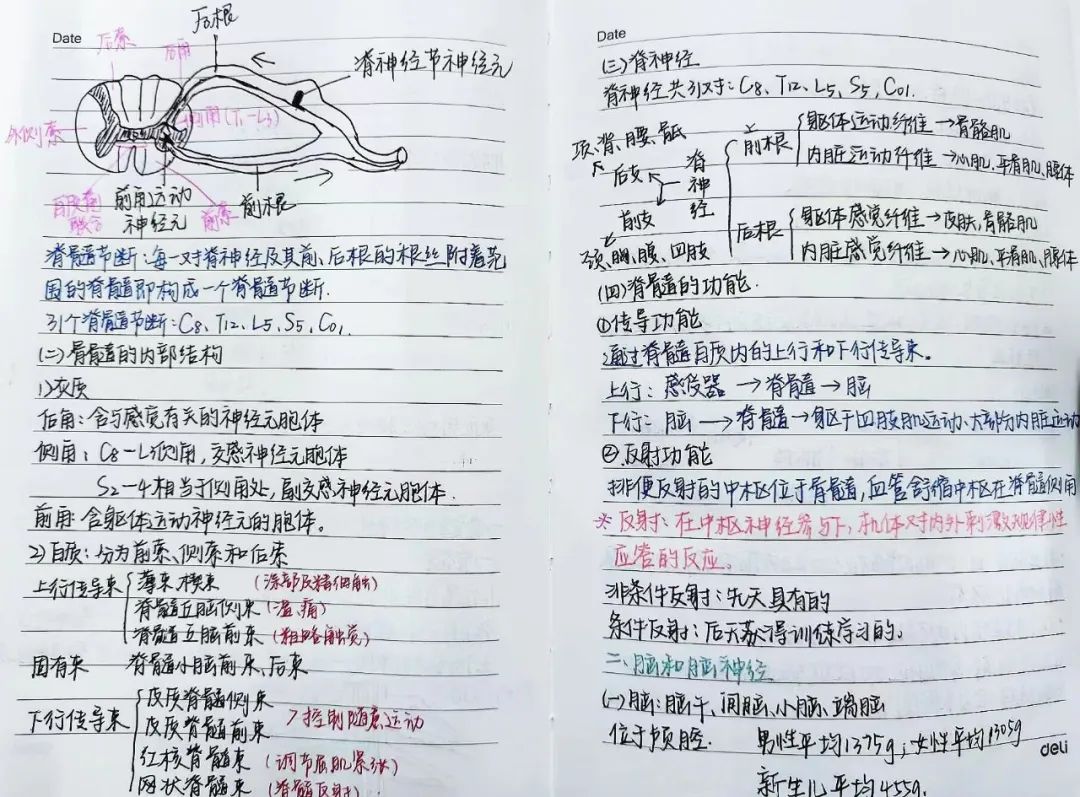 Date
后根
后索
后角
脊神经节神经元
侧角(T1-L3)
外侧索
前角运动
神经元
前索
前根
白质前
联合
脊髓节断:每一对脊神经及其前、后根的根丝附着范
围的脊髓即构成一个脊髓节断.
31个脊髓节断:C8、T12、L5、S5、Co1.
(二)脊髓的内部结构
1)灰质
后角:含与感觉有关的神经元胞体
侧角:C8-L3侧角,交感神经元胞体
S2-4相当于侧角处,副交感神经元胞体.
前角:含躯体运动神经元的胞体。
2)白质:分为前索、侧索和后索
上行传导束
薄束、楔束 (深部及精细触)
脊髓丘脑侧束(温、痛)
脊髓丘脑前束(粗略触觉)
固有束 脊髓小脑前束、后束
下行传导束
皮质脊髓侧束
皮质脊髓前束 >控制随意运动
红核脊髓束 (调节屈肌紧张)
网状脊髓束 (脊髓反射)
Date
(三)脊神经
脊神经共31对:C8、T12、L5、S5、Co1.
项、脊、腰、骶
后支
脊神经
前支
颈、胸、腰、四肢
前根
躯体运动纤维→骨骼肌
内脏运动纤维→心肌、平滑肌、腺体
后根
躯体感觉纤维→皮肤,骨骼肌
内脏感觉纤维→心肌、平滑肌、腺体
(四)脊髓的功能.
①传导功能
通过脊髓白质内的上行和下行传导束。
上行:感受器→脊髓→脑
下行:脑→脊髓→躯干四肢肌运动、大部分内脏运动
②反射功能
排便反射的中枢位于骨髓,血管舒缩中枢在脊髓侧角
*反射:在中枢神经参与下,机体对内外刺激规律性
应答的反应。
非条件反射:先天具有的
条件反射:后天获得训练学习的。
二、脑和脑神经
(一)脑:脑干、间脑、小脑、端脑
位于颅腔. 男性平均1375g;女性平均1305g
新生儿平均455g.
deli